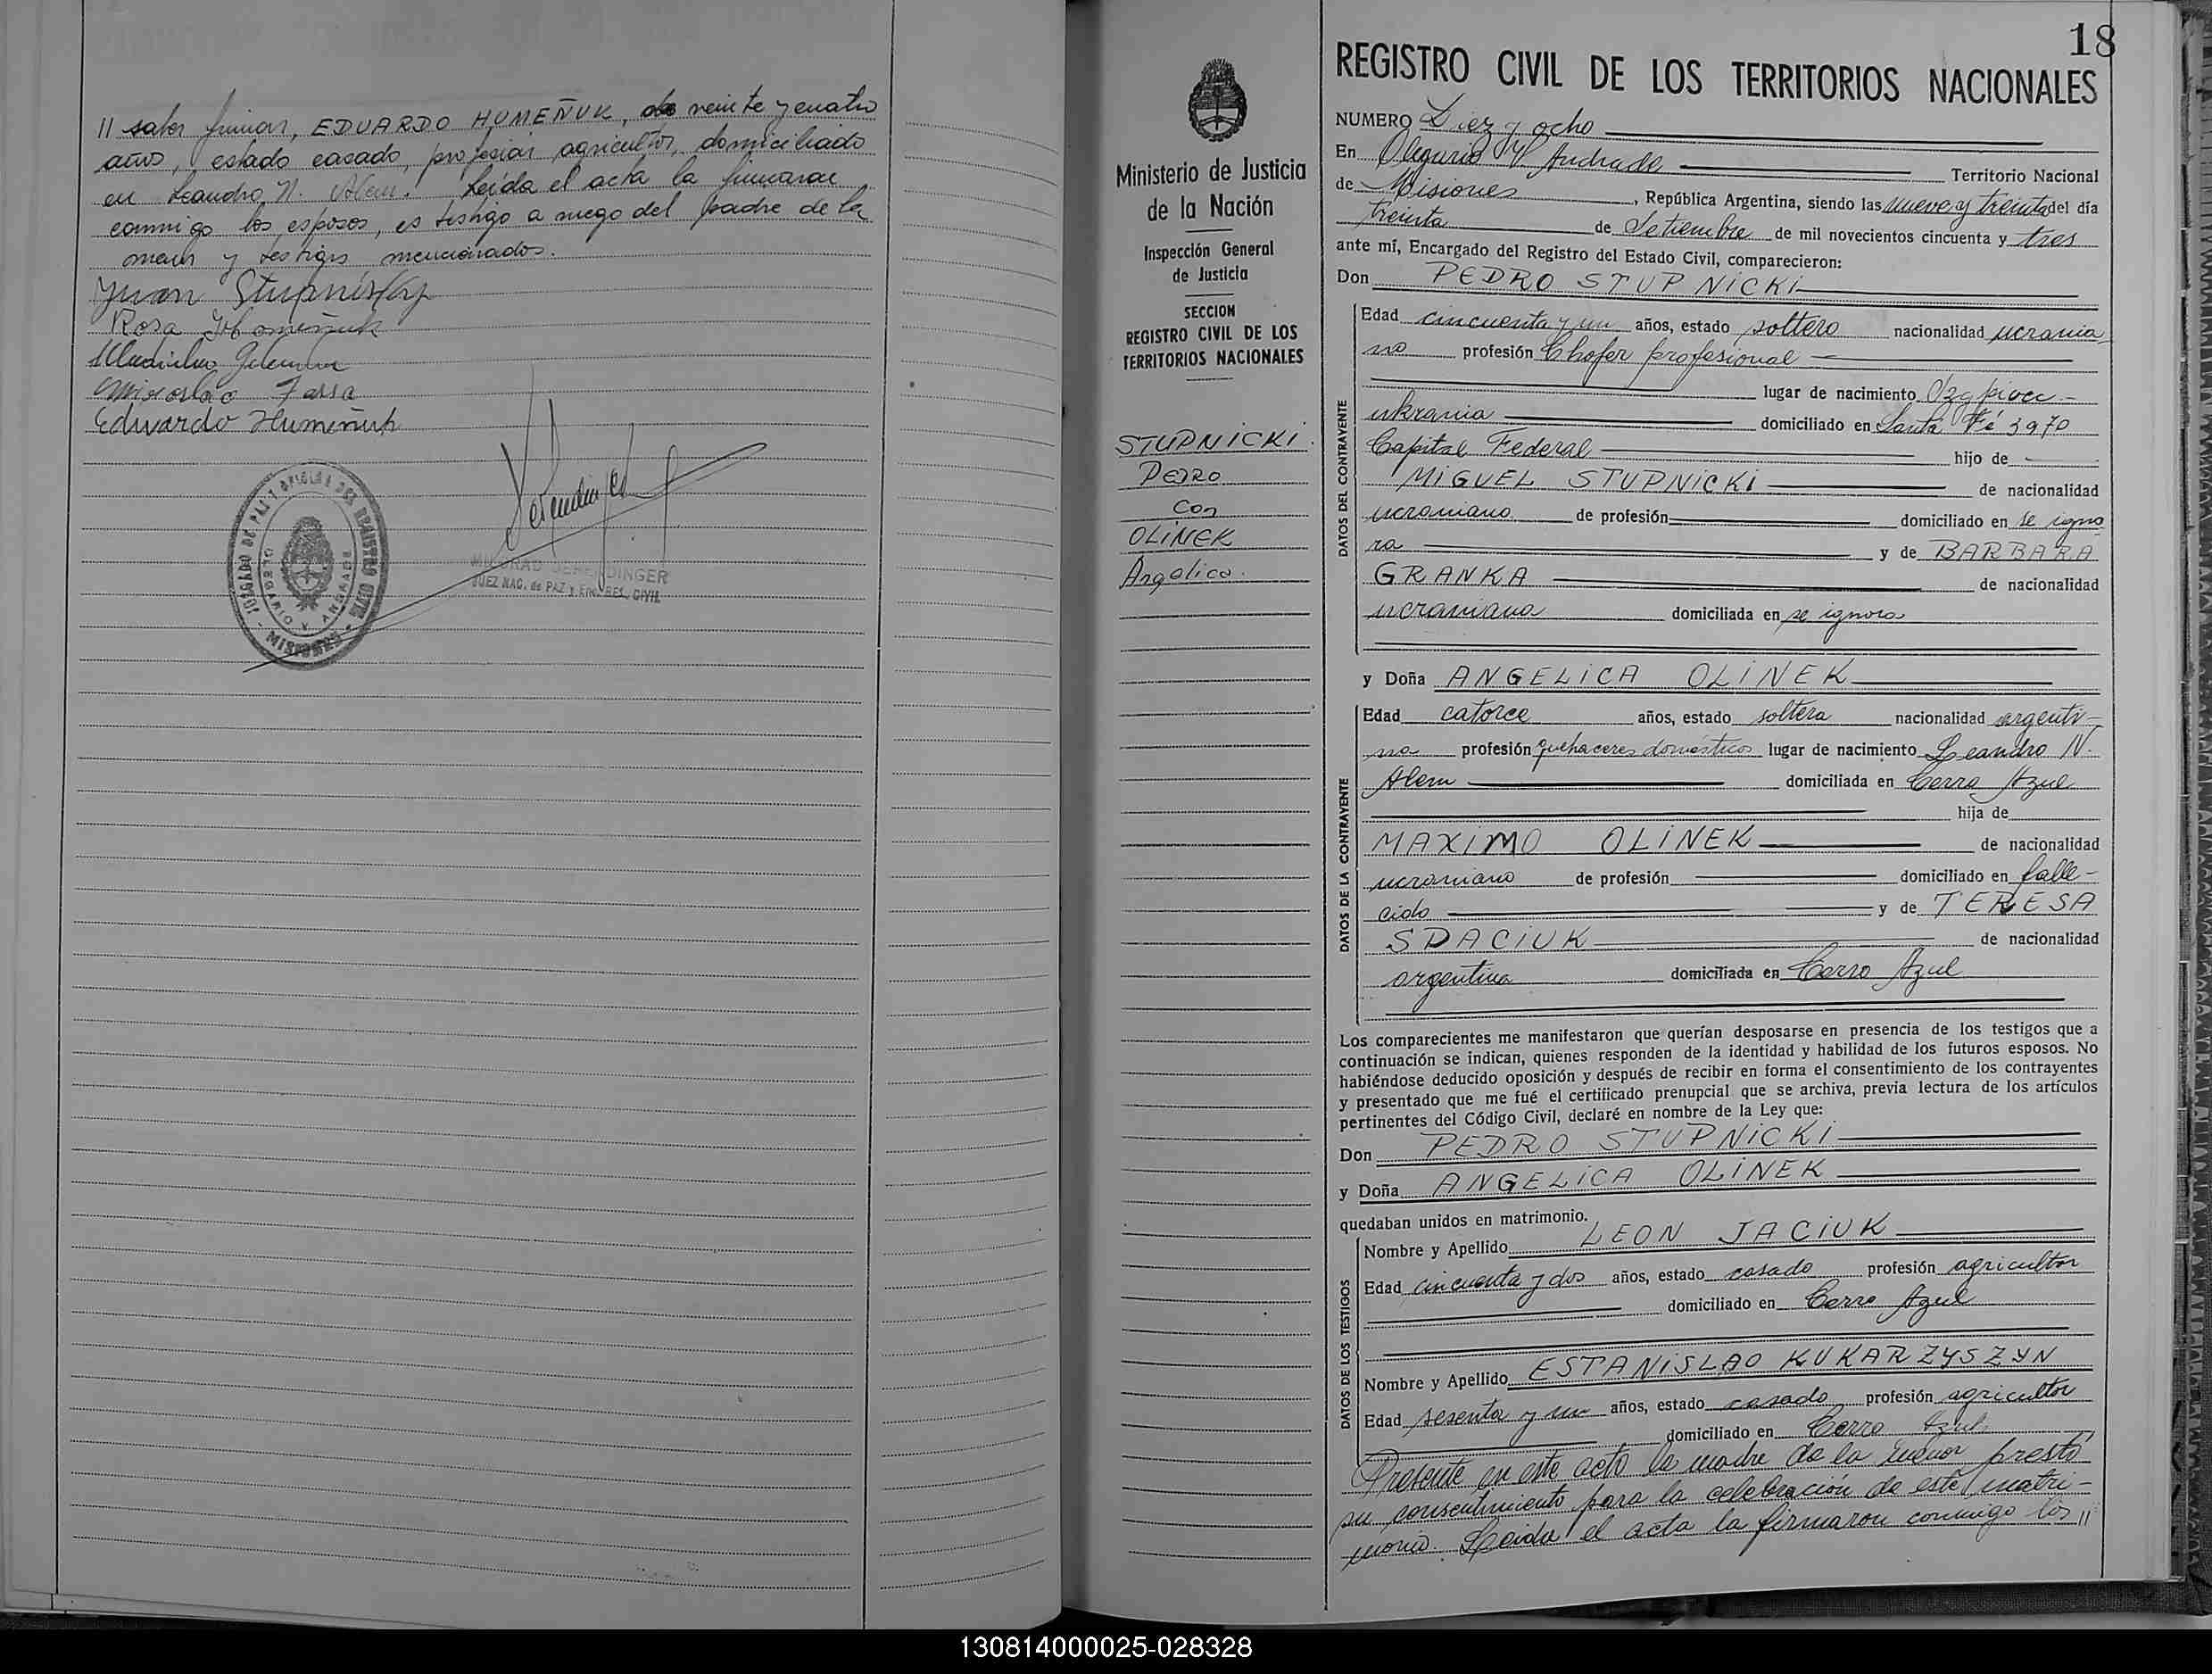 // saber firmar, EDUARDO HUMEÑUK, de veinte y cuatro
años, estado casado, profesión agricultor, domiciliado
en Leandro N. Alem. Leída el acta la firmaron
conmigo los esposos, es testigo a ruego del padre de la
y testigos mencionados.
Juan Stupnisky
Rosa
Eduardo Humeñuk
JUZGADO DE PAZ Y OFICINA DEL REGISTRO CIVIL
OLEGARIO V. ANDRADE
- MISIONES -
JUEZ NAC. de PAZ y ENC. REG. CIVIL
18
Ministerio de Justicia
de la Nación
Inspección General
de Justicia
SECCION
REGISTRO CIVIL DE LOS
TERRITORIOS NACIONALES
STUPNICKI
PEDRO
con
OLINEK
Angelica.
REGISTRO CIVIL DE LOS TERRITORIOS NACIONALES
NUMERO Diez y ocho
En Olegario V. Andrade Territorio Nacional
de Misiones, República Argentina, siendo las nueve y treinta del día
treinta de Setiembre de mil novecientos cincuenta y tres
ante mí, Encargado del Registro del Estado Civil, comparecieron:
Don PEDRO STUPNICKI
DATOS DEL CONTRAYENTE
Edad cincuenta y un años, estado soltero nacionalidad ucrania
no profesión Chofer profesional
lugar de nacimiento
ukrania domiciliado en Santa Fé 3970
Capital Federal hijo de
MIGUEL STUPNICKI de nacionalidad
ucraniano de profesión domiciliado en se igno
ra y de BARBARA
GRANKA de nacionalidad
ucraniana domiciliada en se ignora
y Doña ANGELICA OLINEK
DATOS DE LA CONTRAYENTE
Edad catorce años, estado soltera nacionalidad argenti-
na profesión quehaceres domésticos lugar de nacimiento Leandro N.
Alem domiciliada en Cerro Azul
hija de
MAXIMO OLINEK de nacionalidad
ucraniano de profesión domiciliado en falle-
cido y de TERESA
SDACIUK de nacionalidad
argentina domiciliada en Cerro Azul
Los comparecientes me manifestaron que querían desposarse en presencia de los testigos que a
continuación se indican, quienes responden de la identidad y habilidad de los futuros esposos. No
habiéndose deducido oposición y después de recibir en forma el consentimiento de los contrayentes
y presentado que me fué el certificado prenupcial que se archiva, previa lectura de los artículos
pertinentes del Código Civil, declaré en nombre de la Ley que:
Don PEDRO STUPNICKI
y Doña ANGELICA OLINEK
quedaban unidos en matrimonio.
DATOS DE LOS TESTIGOS
Nombre y Apellido LEON JACIUK
Edad cincuenta y dos años, estado casado profesión agricultor
domiciliado en Cerro Azul
Nombre y Apellido ESTANISLAO KUKARZYSZYN
Edad sesenta y un años, estado casado profesión agricultor
domiciliado en Cerro Azul
Presente en este acto la madre de la menor prestó
su consentimiento para la celebración de este matri-
monio. Leída el acta la firmaron conmigo los //
130814000025-028328